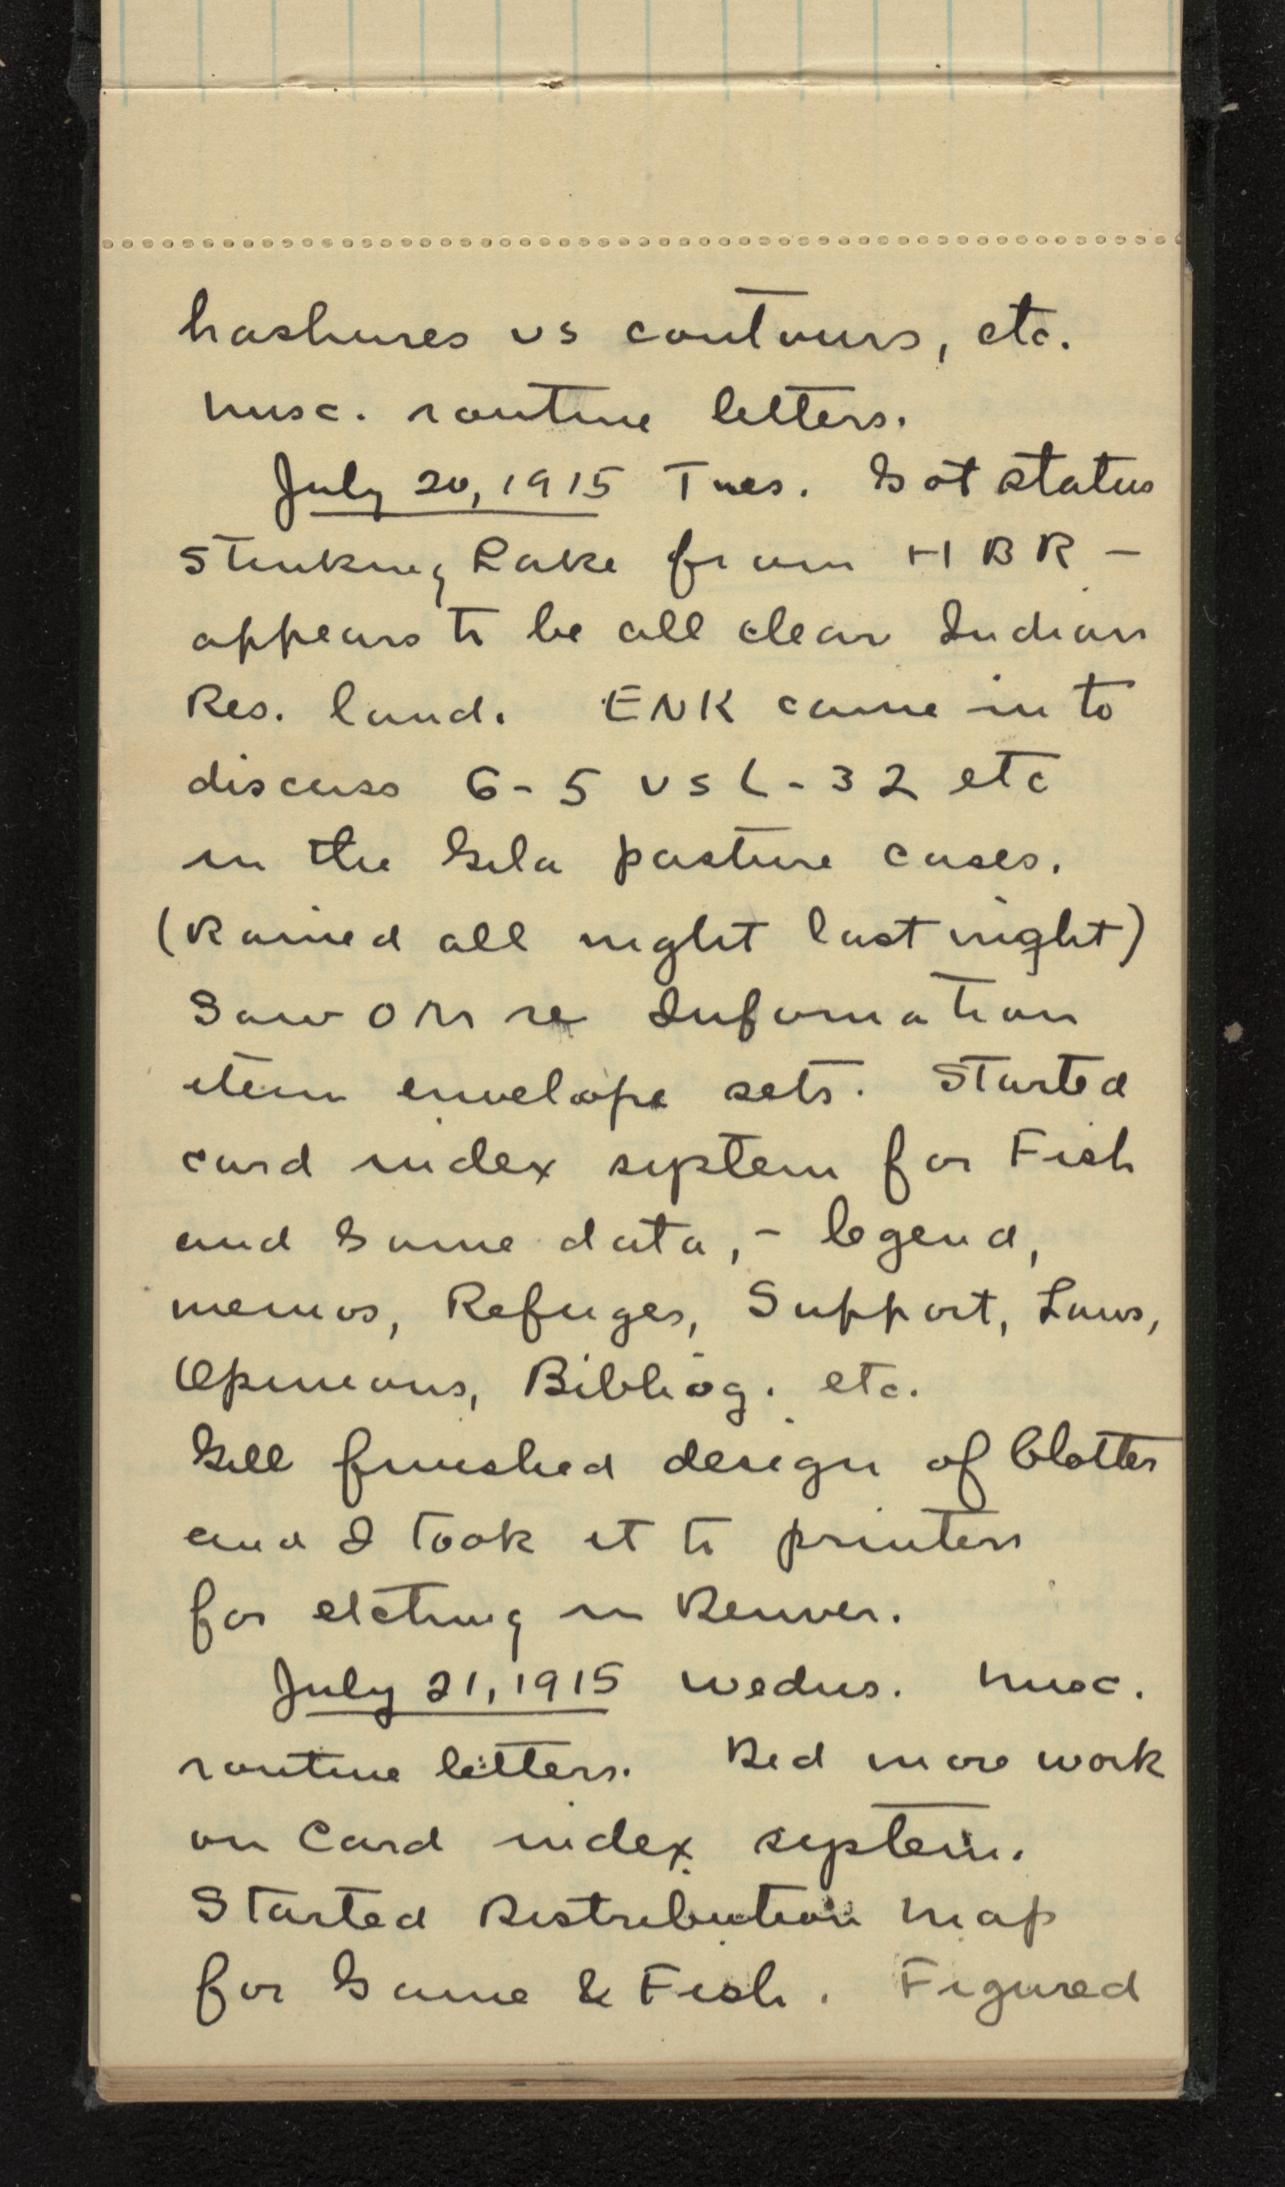 hashures vs contours, etc.
Misc. routine letters.
July 20, 1915 Tues. Got status
Stinking Lake from HBR -
appears to be all clear Indian
Res. land. ENK came in to
discuss G-5 vs L-32 etc
in the Gila pasture cases.
(Rained all night last night)
Saw OM re Information
item envelope sets. Started
card index system for Fish
and Game data, - legend,
memos, Refuges, Support, Laws,
Opinions, Bibliog. etc.
Gill finished design of blotter
and I took it to printers
for etching in Denver.
July 21, 1915 Wednes. Misc.
routine letters. Did more work
on Card index system.
Started Distribution Map
for Game & Fish. Figured